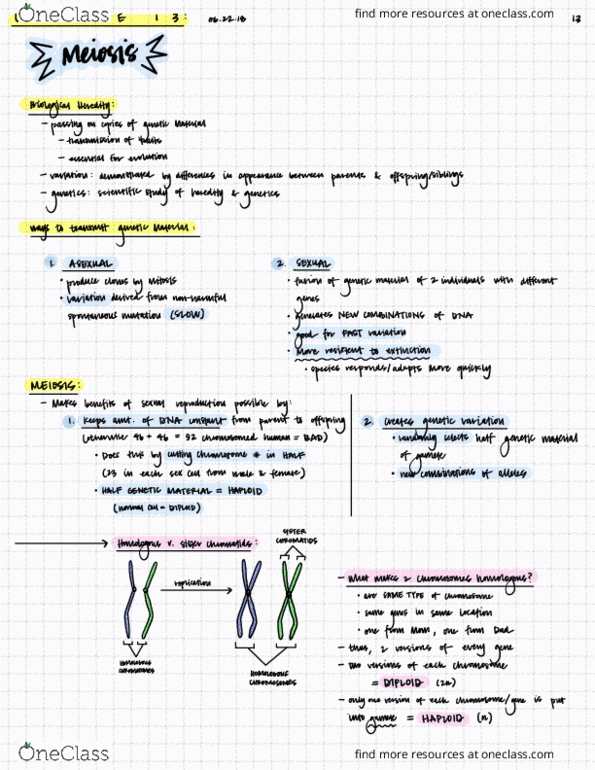 OneClass
find more resources at oneclass.com
E 13: 06.22.18
13
Meiosis
Biological Heredity:
- passing on copies of genetic material
- transmission of traits
- essential for evolution
- variation: demonstrated by differences in appearance between parents & offspring/siblings
- genetics: scientific study of heredity & genetics
ways to transmit genetic material:
1. ASEXUAL
• produce clones by mitosis
• variation derived from non-harmful
spontaneous mutation (SLOW)
2. SEXUAL
• fusion of genetic material of 2 individuals with different
genes
• generates NEW COMBINATIONS OF DNA
• good for FAST variation
• more resistent to extinction
• species responds/adapts more quickly
MEIOSIS:
- Makes benefits of sexual reproduction possible by:
1. keeps amt. of DNA constant from parent to offspring
(otherwise 46 + 46 = 92 chromosomed human = BAD)
• Does this by cutting chromosome # in HALF
(23 in each sex cell from male & female)
• HALF GENETIC MATERIAL = HAPLOID
(normal cell = DIPLOID)
2. creates genetic variation
• randomly selects half genetic material
of gamete
• new combinations of alleles
Homologous v. sister chromatids:
SISTER
CHROMATIDS
replication
HOMOLOGOUS
CHROMOSOMES
HOMOLOGOUS
CHROMOSOMES
- What makes 2 chromosomes homologous?
• are SAME TYPE of chromosome
• same genes in same location
• one from Mom, one from Dad
- thus, 2 versions of every gene
- two versions of each chromosome
= DIPLOID (2n)
- only one version of each chromosome/gene is put
into gamete = HAPLOID (n)
OneClass
find more resources at oneclass.com